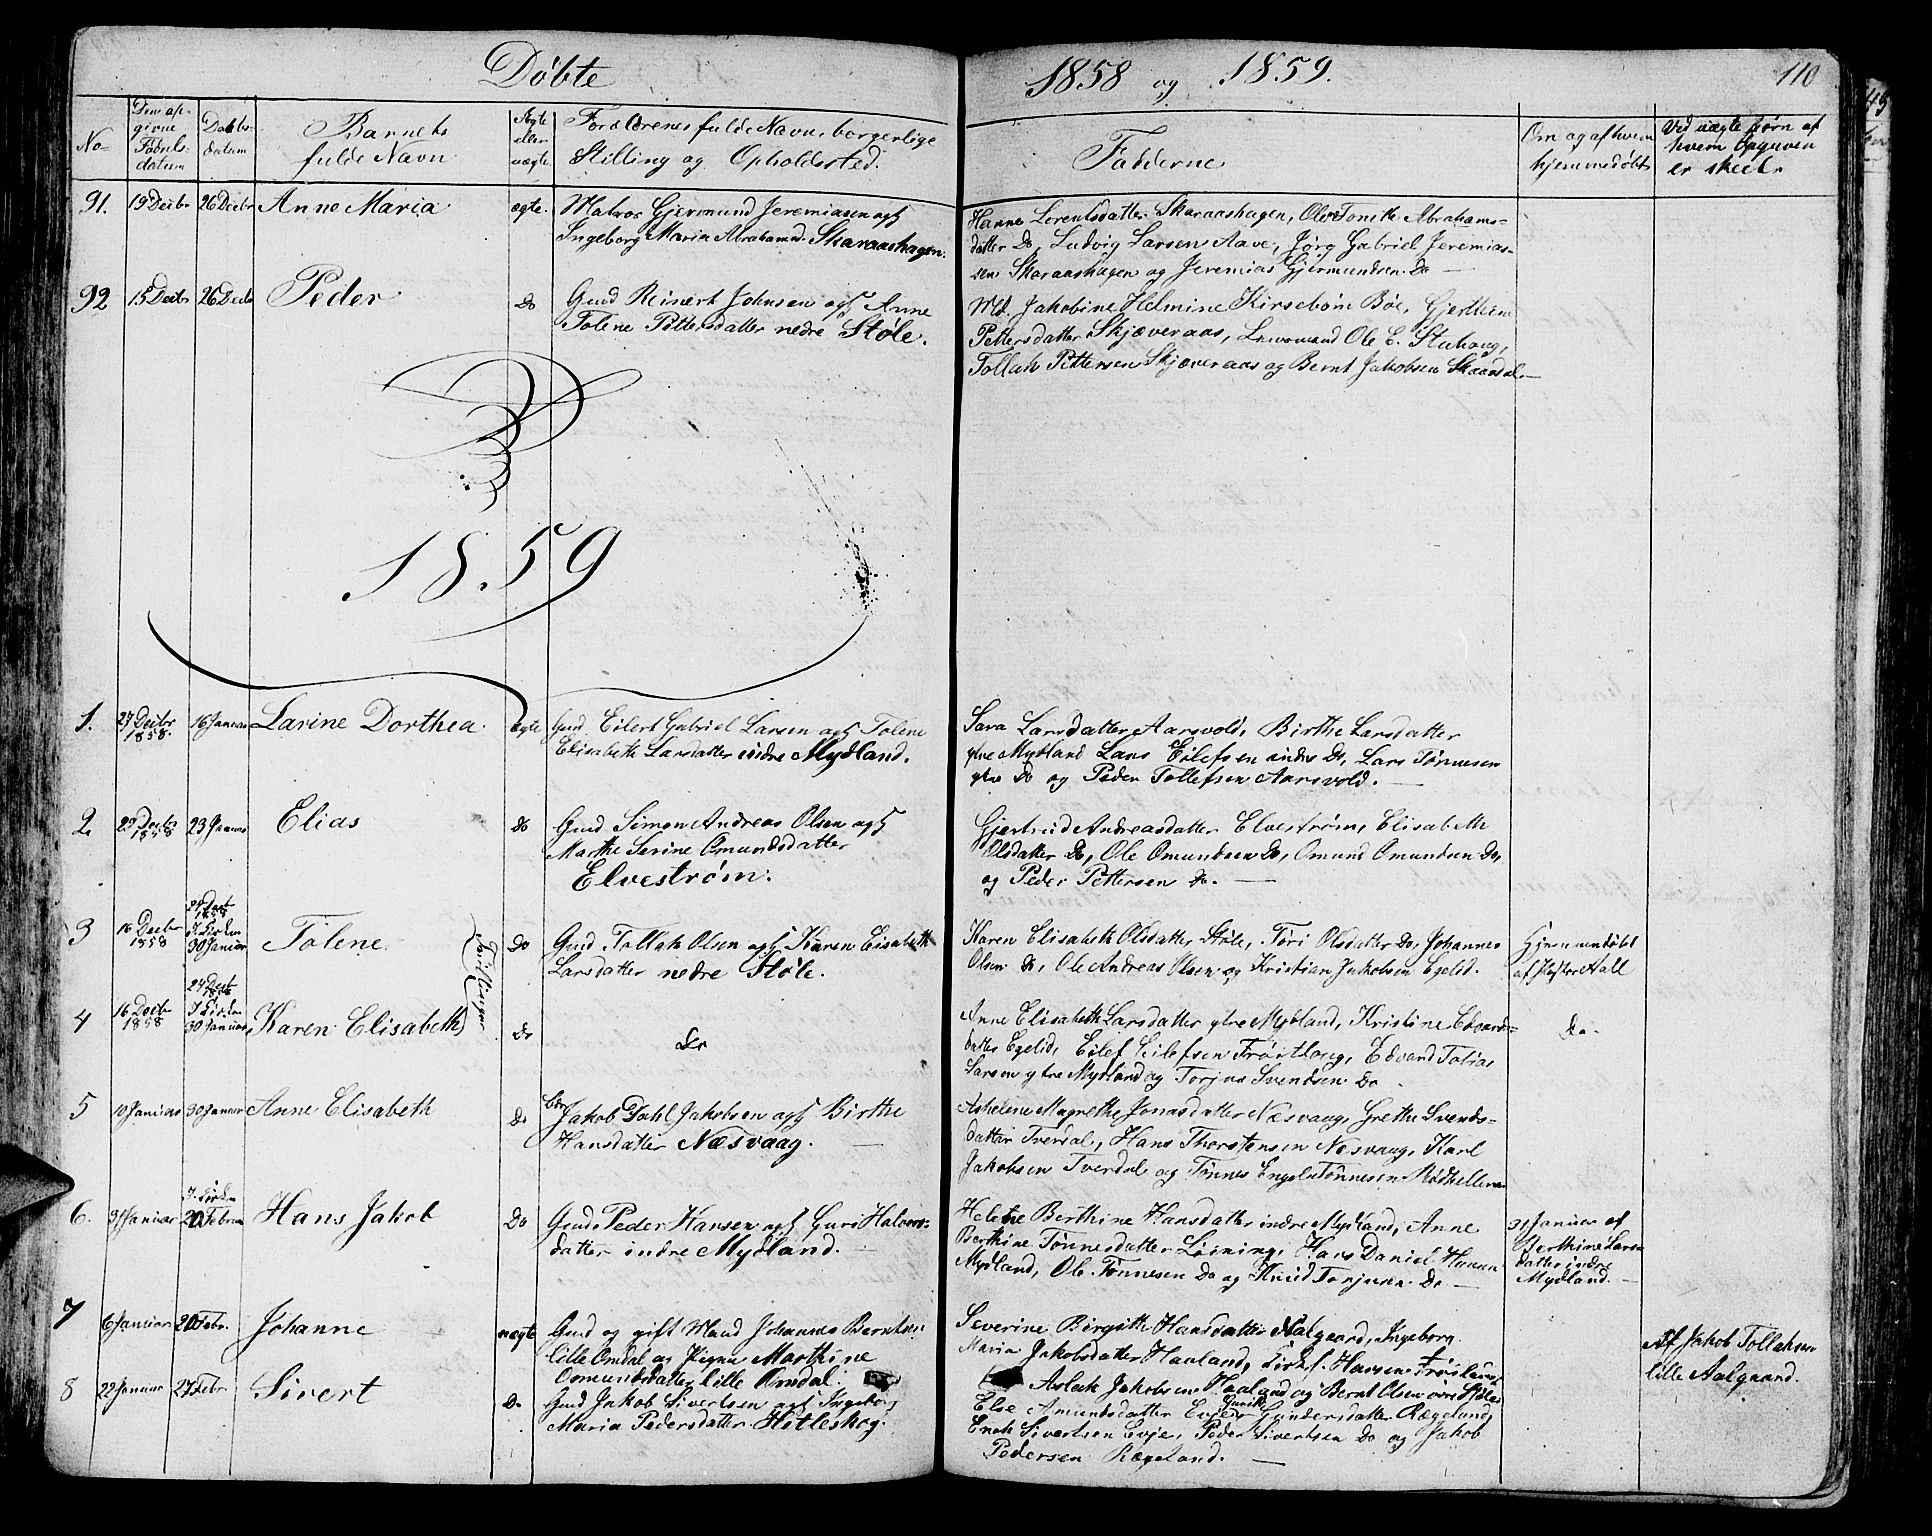 Döbte
1858 og 1859.
110
No
Den af-
givne
Födsels-
datum
Daabs-
datum
Barnets
fulde Navn
Ægte
eller
uægte
Forældrenes fulde Navn, borgerlige
Stilling og Opholdssted.
Fadderne
Om og af hvem
hjemmedöbt
Ved uægte Börn af
hvem Opgaven
er skeet.
91. 19 Decbr 26 Decbr Anne Maria ægte. Matros Gjermund Jeremiasen og
Ingeborg Maria Abrahamsd. Skaraashagen.
Hanne Lorentsdatter Skaraashagen, Oleve Tonette Abrahams-
datter Do, Ludvig Larsen Aave, Jörg Gabriel Jeremias-
sen Skaraashagen og Jeremias Gjermundsen Do
92 15 Decbr 26 Decbr Peder Do Gmd Reinert Johnsen og Anne
Tolene Pettersdatter nedre Støle.
Md. Jakobine Helmine Kirsebom Böe, Gjerthine
Pettersdatter Skjæveraas, Ole E. Stuhaug,
Tollak Pettersen Skjæveraas og Bernt Jakobsen Skaardal.
1859
1. 27 Decbr
1858. 16 Januar Larine Dorthea ægte Gmd. Eilert Gabriel Larsen og Tolene
Elisabeth Larsdatter indre Mydland.
Sara Larsdatter Aarsvold, Birthe Larsdatter
ytre Mydland Lars Eilefsen indre Do, Lars Tönnesen
ytre Do og Peder Tollefsen Aarsvold.
2. 29 Decbr
1858 23 Januar Elias Do Gmd Simon Andreas Olsen og
Marthe Serine Omundsdatter
Elveström.
Gjertrud Andreasdatter Elveström, Elisabeth
Olsdatter Do, Ole Omundsen Do, Omund Omundsen Do,
og Peder Pettersen Do.
3 16 Decbr
1858 24 Decb
1858
I Kirken
30 Januar Tolene Tvillinger Do Gmd Tollak Olsen og Karen Elisabeth
Larsdatter nedre Støle.
Karen Elisabeth Olsdatter Støle, Tori Olsdatter Do, Johannes
Olsen Do, Ole Andreas Olsen og Kristian Jakobsen Egelid.
Hjemmedöbt
af Aall
4 16 Decbr
1858 24 Decb
1858
I Kirken
30 Januar Karen Elisabeth Do Do
Anne Elisabeth Larsdatter ytre Mydland, Kristine Edvards-
datter Egelid, Eilef Eilefsen Fröitlaug, Edvard Tobias
Larsen ytre Mydland og Torjus Svendsen Do
Do.
5 10 Januar 30 Januar Anne Elisabeth Do Jakob Dahl Jakobsen og Birthe
Hansdatter Næsvaag.
Ashelene Magrethe Jonasdatter Næsvaag, Grethe Svends-
datter Tverdal, Hans Thorstensen Næsvaag, Karl
Jakobsen Tverdal og Tönnes Engel Tönnesen
6. 31 Januar I Kirken
20 Februar Hans Jakob Do Gmd. Peder Hansen og Guri Halvors-
datter indre Mydland.
Helene Berthine Hansdatter indre Mydland, Anne
Berthine Tönnesdatter Løining, Hans Daniel Hansen
Mydland, Ole Tönnesen Do og Knud Torjusen Do
31 Januar af
Berthine Lars-
datter indre
Mydland.
7 6 Januar 20 Febr. Johanne uægte Gmd og gift Mand Johannes Berntsen
lille Omdal og Pigen Marthine
Omundsdatter lille Omdal.
Severine Birgithe Hansdatter Aalgaard, Ingeborg
Maria Jakobsdatter Haaland,
Aslak Jakobsen Haaland og Bernt Olsen
Af Jakob Tollaksen
lille Aalgaard.
8 22 Januar 27 Febr. Sivert Do Gmd Jakob Sivertsen og Ingeborg
Maria Pedersdatter Hitleskog.
Else Amundsdatter Evje, Gunild Gundersdatter Rægeland,
Enok Sivertsen Evje, Peder Sivertsen Do og Jakob
Pedersen Rægeland.